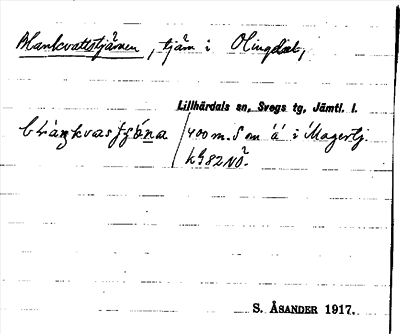 Blankvattstjärnen, tjärn i Olingdal,
Lillhärdals sn, Svegs tg, Jämtl. l.
400 m. S om å i Magertj.
k G 82 NÖ.
S. ÅSANDER 1917.